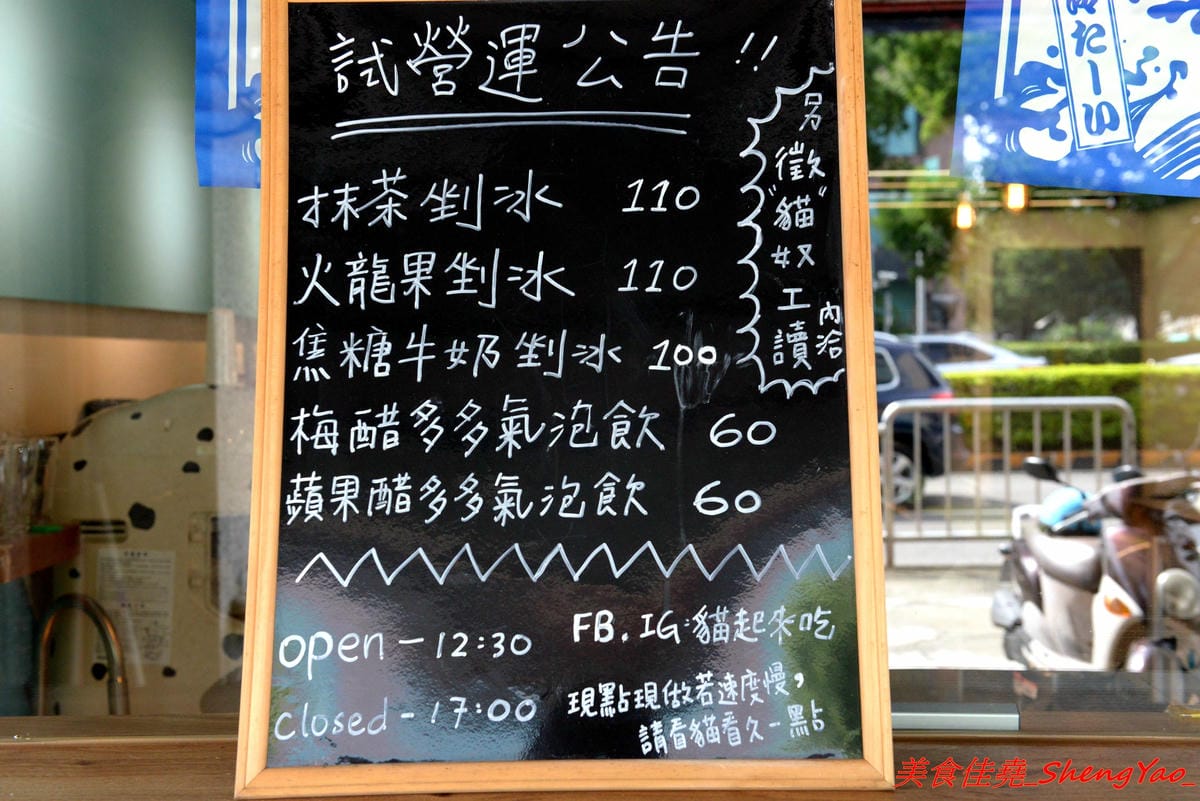 試營運公告!!
抹茶剉冰 110
火龍果剉冰 110
焦糖牛奶剉冰 100
梅醋多多氣泡飲 60
蘋果醋多多氣泡飲 60
另
徵"貓"奴工讀
內洽
open - 12:30
closed - 17:00
FB. IG:貓起來吃
現點現做若速度慢,
請看貓看久一點
たーい
美食佳堯_ShengYao_